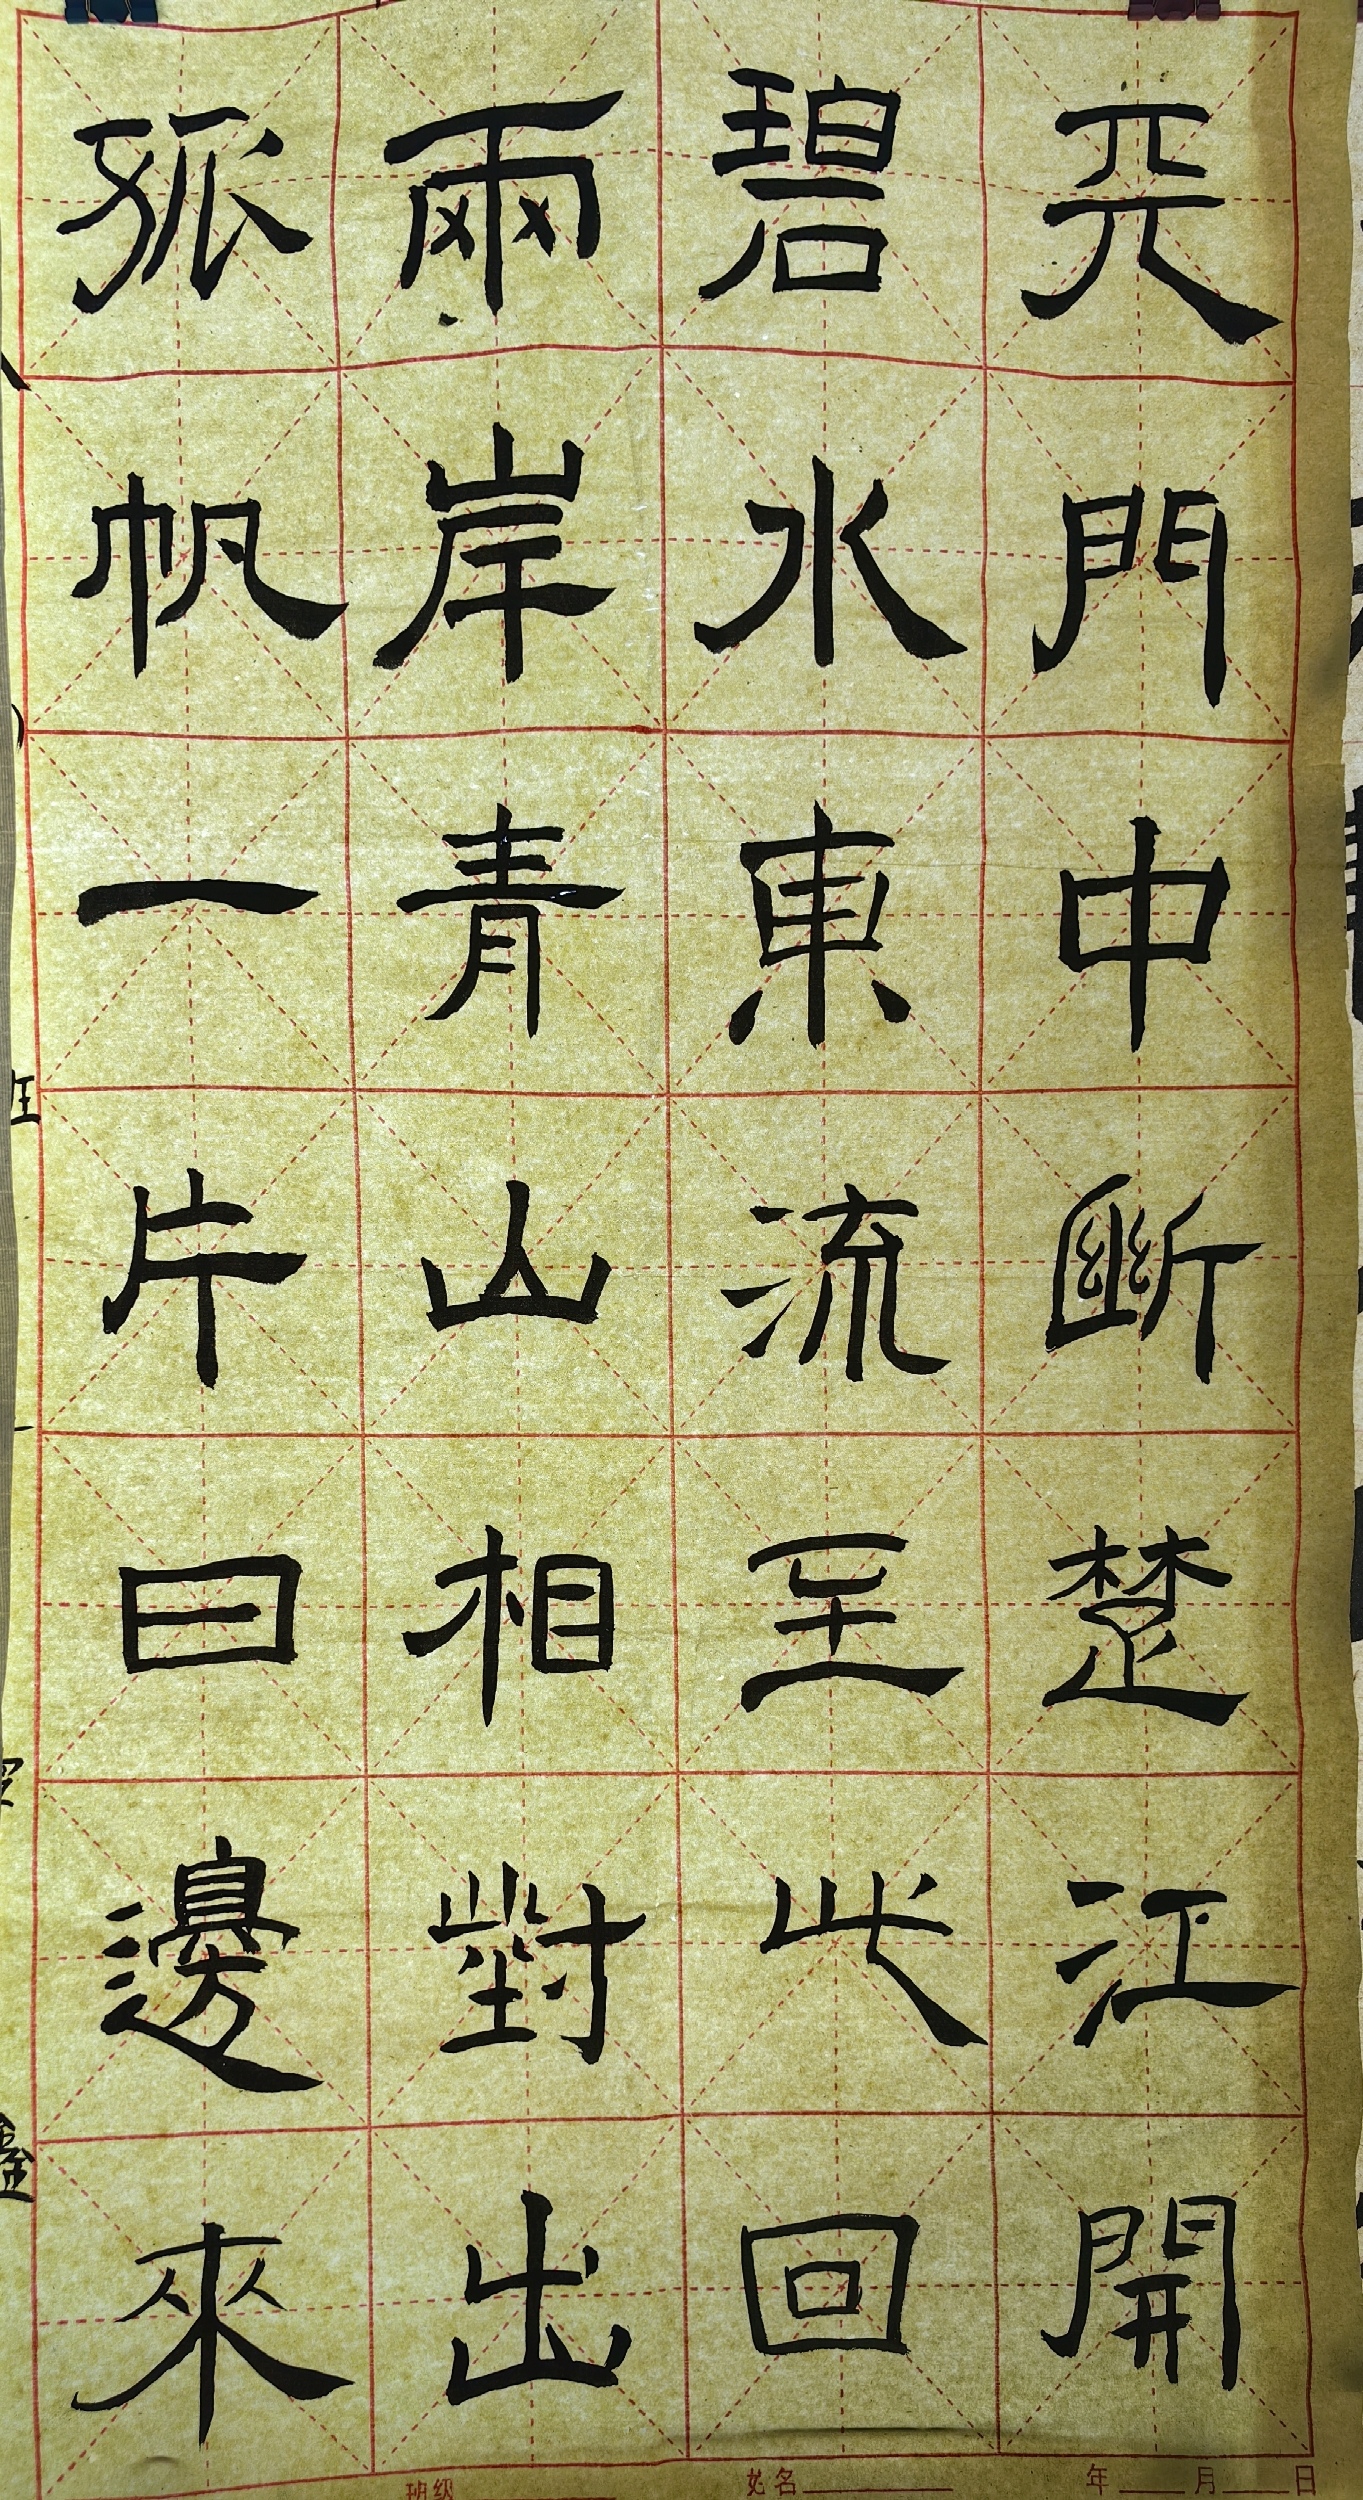 天門中斷楚江開
碧水東流至此回
兩岸青山相對出
孤帆一片日邊來
班级
姓名
年 月 日